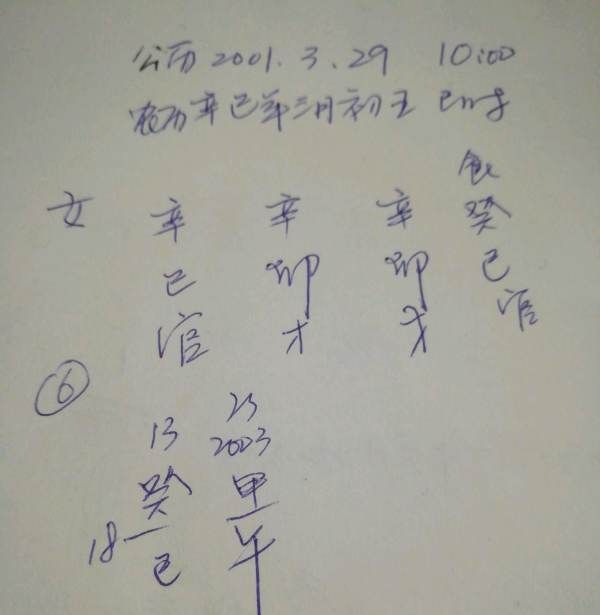 公历 2001.3.29 10:00
农历辛巳年三月初五 巳时
食
女 辛 辛 辛 癸
巳 卯 卯 巳
官 才 才 官
⑥
13 23
2023
癸 甲
18
巳 午